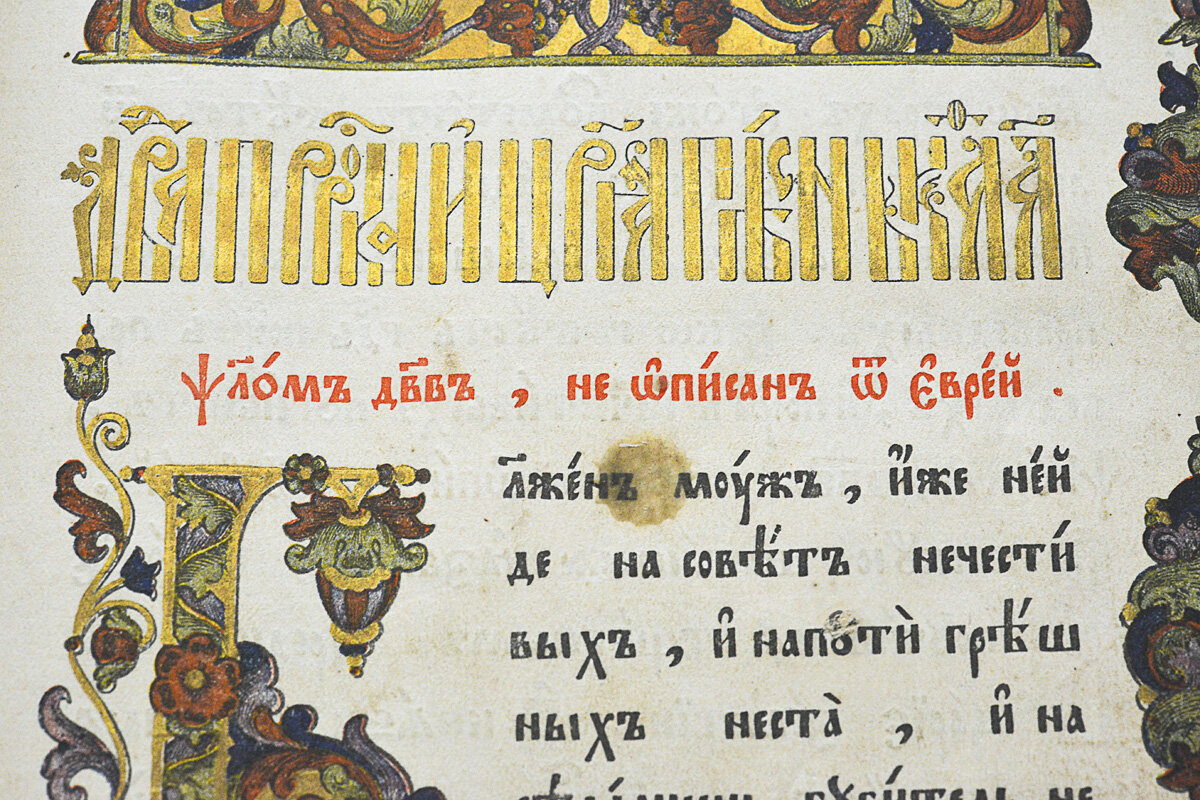 дв҃да прⷪ҇рка и цр҃ѧ пѣ́снь
ѱл҃о́мъ дв҃двъ , не ѡ҆пи́санъ ѿ є҆вре́й .
Бл҃же́нъ моу́жъ , и҆́же не́й
де на совѣ́тъ нечести́
выхъ , и҆ напꙋтѝ грѣ́ш
ныхъ неста̀ , и҆ на